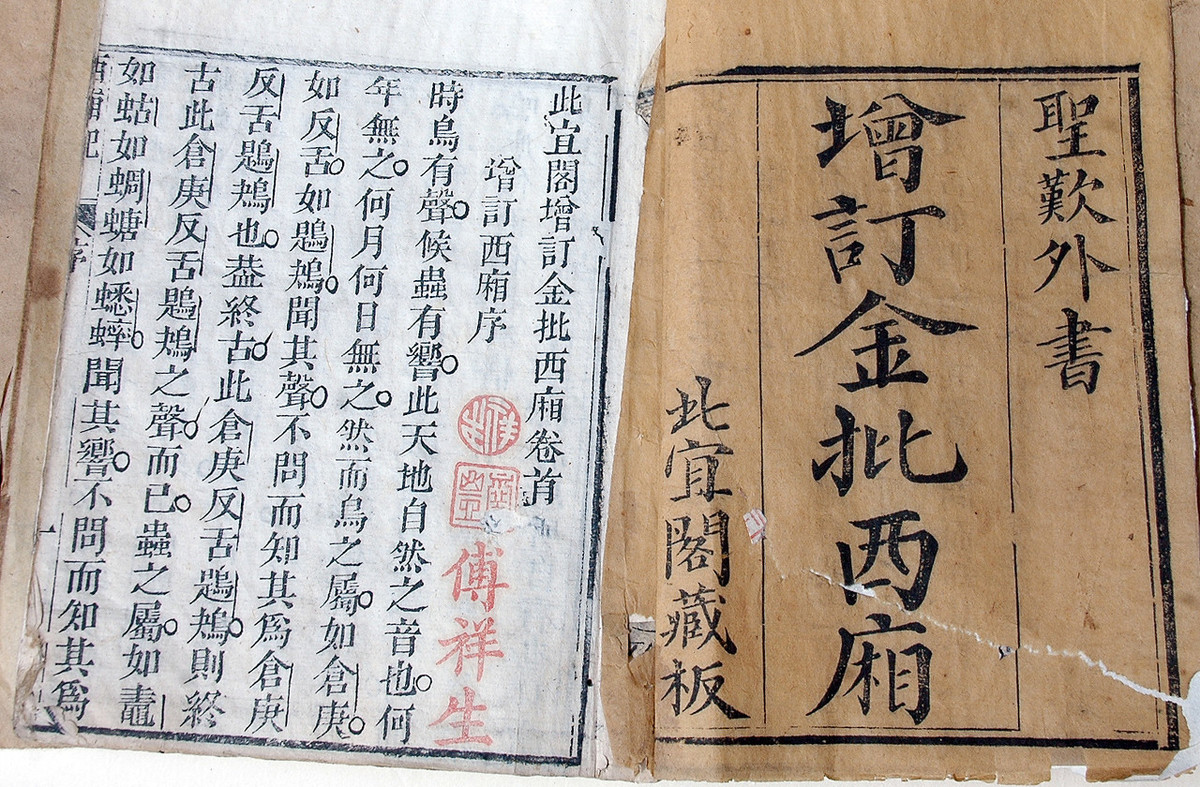 聖歎外書
增訂金批西廂
此宜閣藏板
此宜閣增訂金批西廂卷首
增訂西廂序
時鳥有聲候蟲有響此天地自然之音也何
年無之何月何日無之然而鳥之屬如倉庚
如反舌如鶗鴂聞其聲不問而知其爲倉庚
反舌鶗鴂也葢終古此倉庚反舌鶗鴂則終
古此倉庚反舌鶗鴂之聲而已蟲之屬如
如蛄如蜩螗如蟋蟀聞其響不問而知其爲
西廂記
序
一
傅祥生